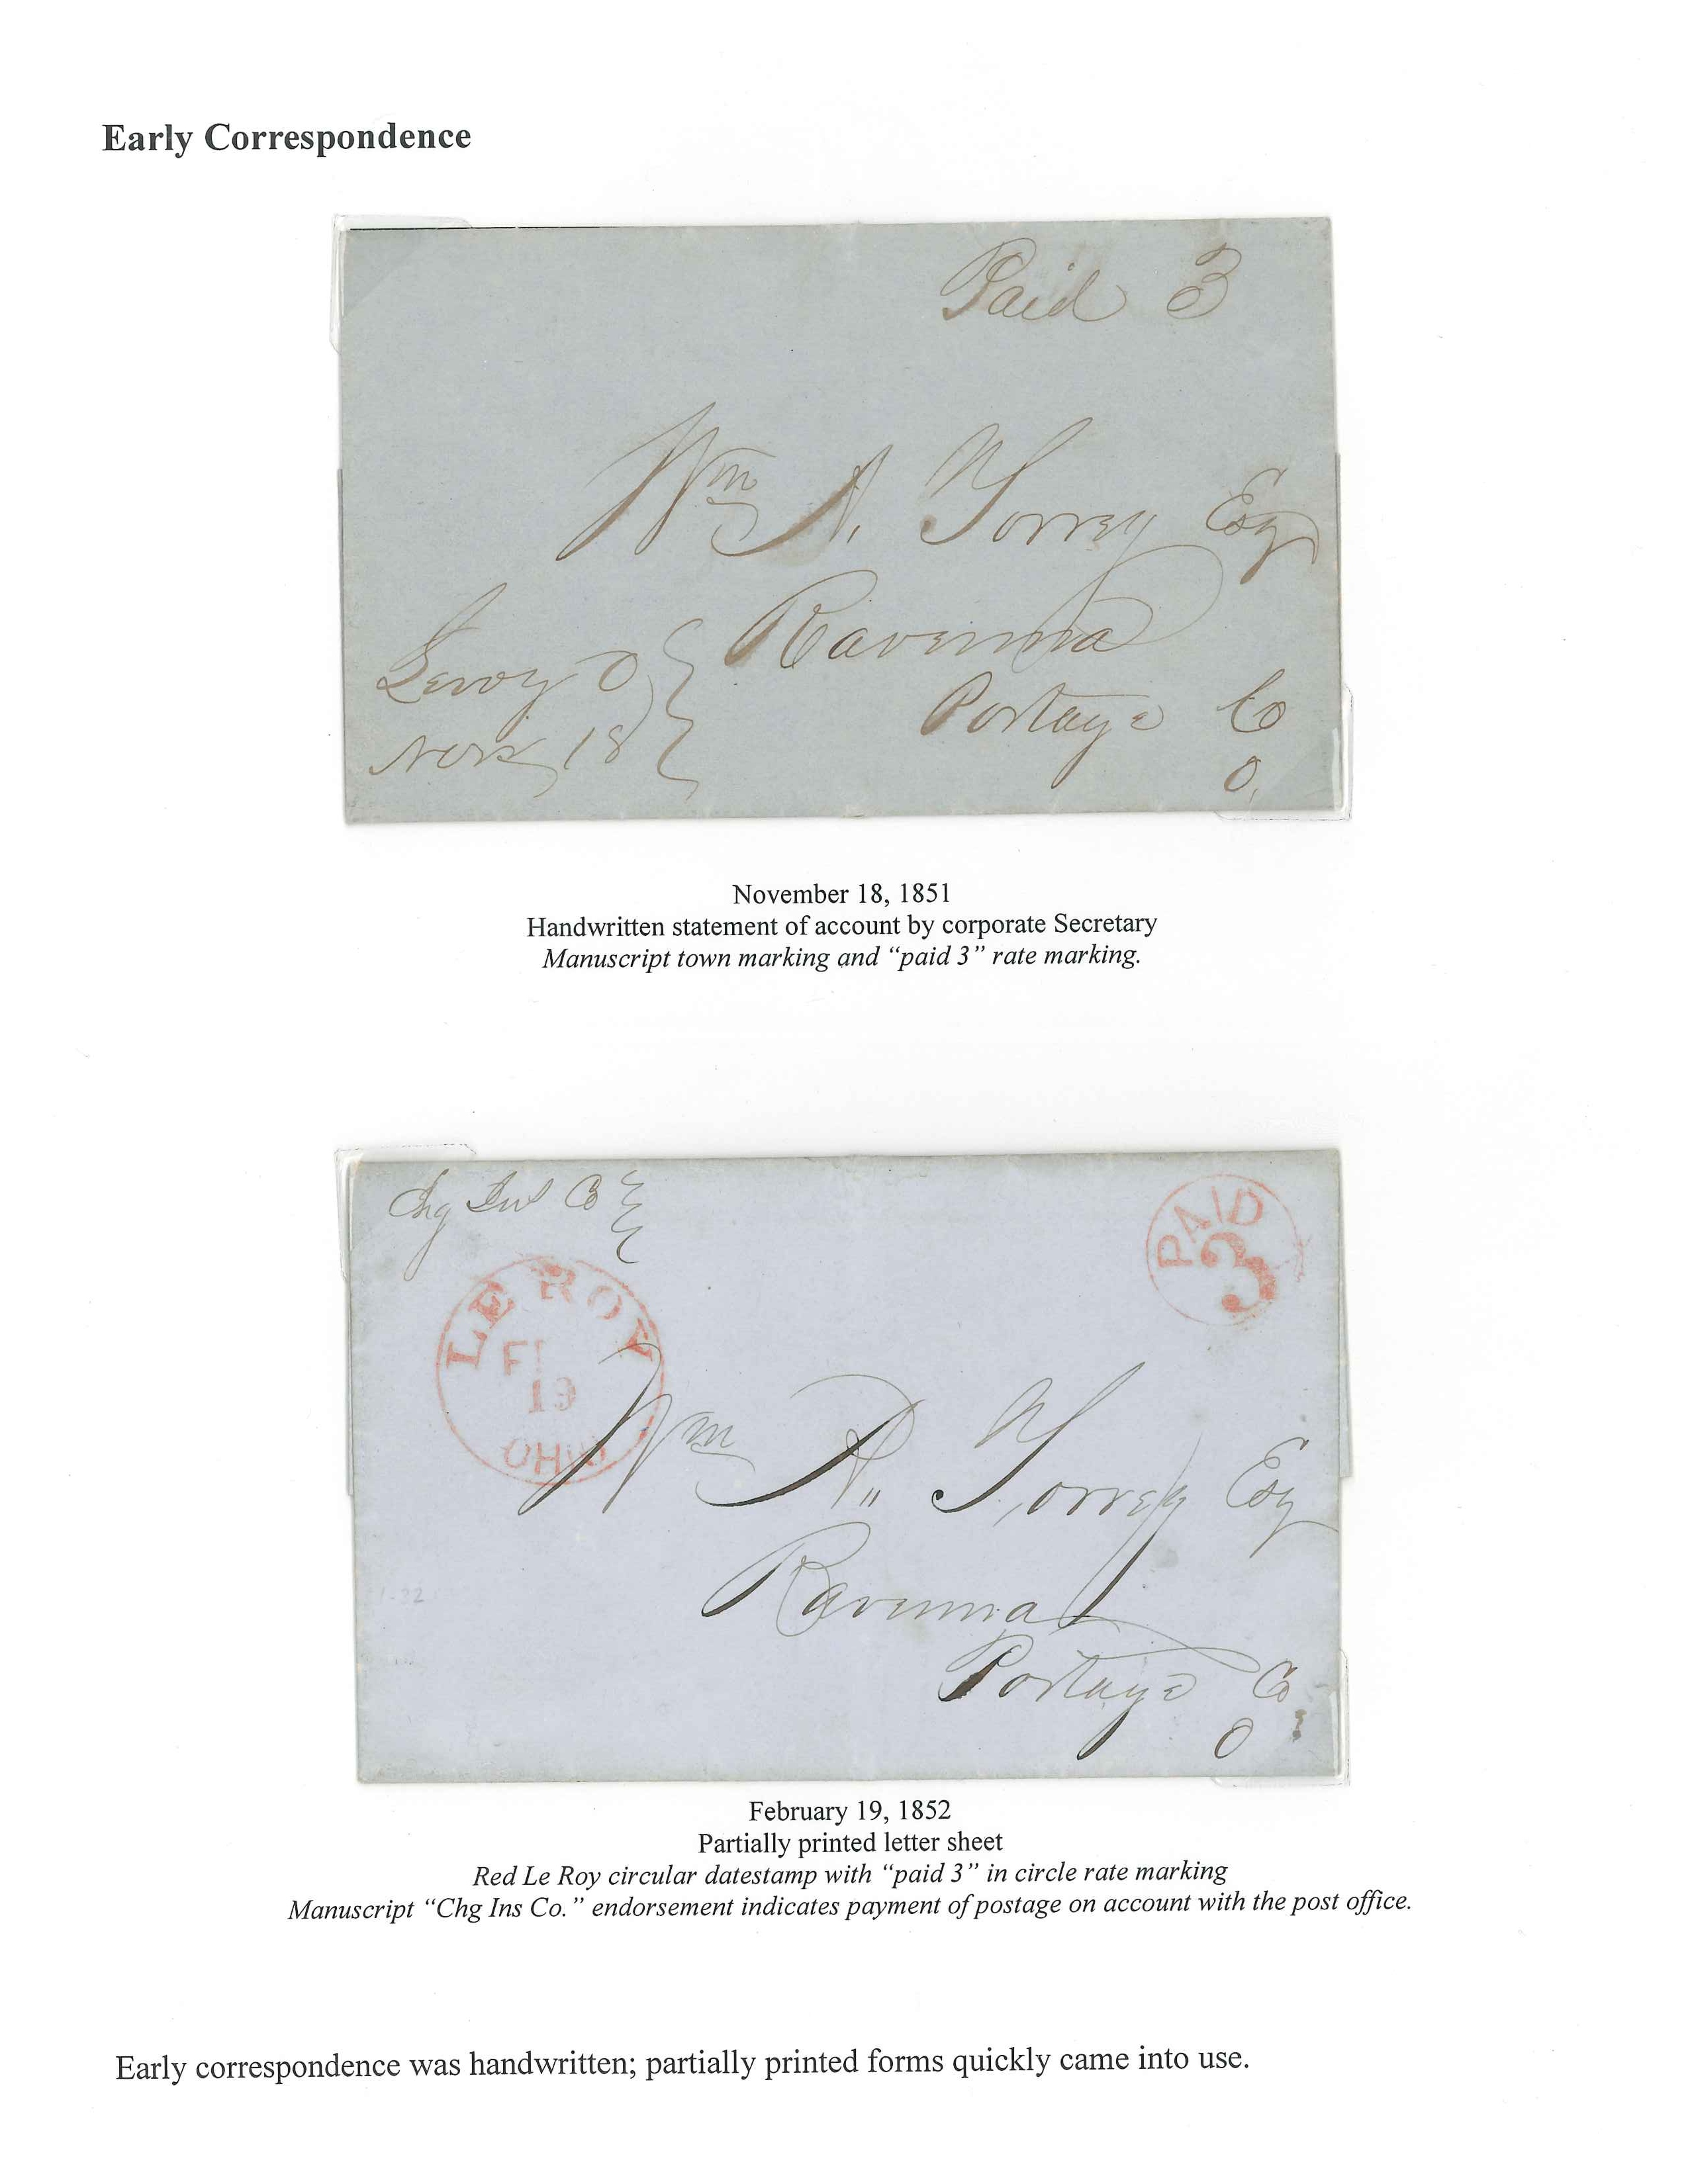 Early Correspondence
Paid 3
Wm A. Torrey Esq
Ravenna
Portage Co
O.
Leroy O
Nov 18
November 18, 1851
Handwritten statement of account by corporate Secretary
Manuscript town marking and “paid 3” rate marking.
Chg Ins Co
PAID
3
LE ROY
19
OHIO
Wm A. Torrey Esq
Ravenna
Portage Co
O
February 19, 1852
Partially printed letter sheet
Red Le Roy circular datestamp with “paid 3” in circle rate marking
Manuscript “Chg Ins Co.” endorsement indicates payment of postage on account with the post office.
Early correspondence was handwritten; partially printed forms quickly came into use.